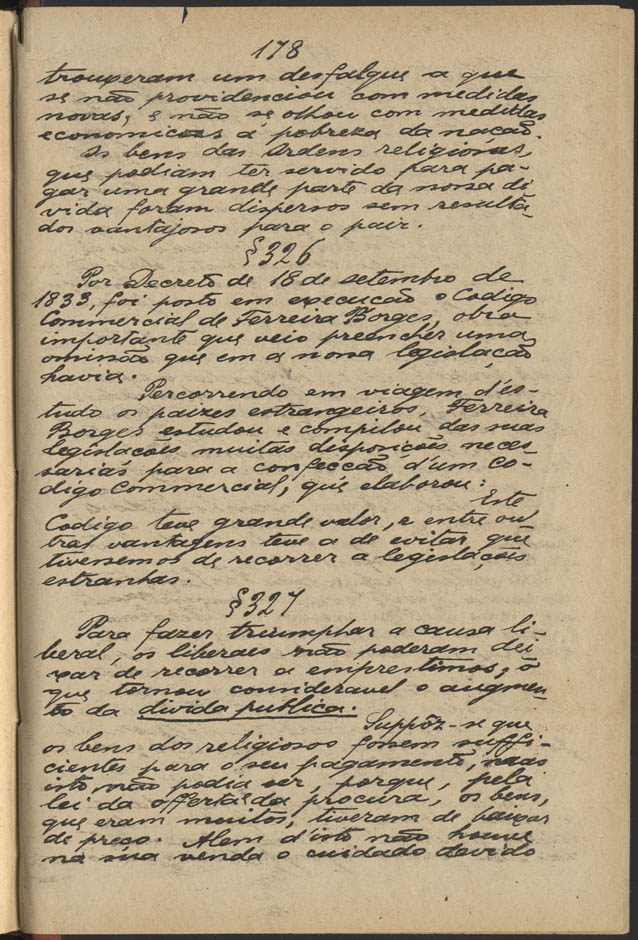 178
trouxeram um desfalque a que
se não providenciou com medidas
novas, e não se olhou com medidas
economicas a pobreza da nação.
Os bens das Ordens religiosas,
que podiam ter servido para pa-
gar uma grande parte da nossa di
vida foram dispersos sem resulta-
dos vantajosos para o paiz.
§326
Por Decreto de 18 de setembro de
1833, foi posto em execução o Codigo
Commercial de Ferreira Borges, obra
importante que veio preencher uma
omissão que em a nossa legislação
havia.
Percorrendo em viagem d'es-
tudo os paizes estrangeiros, Ferreira
Borges estudou e compilou das suas
legislações muitas disposições neces-
sarias para a confecção d'um Co-
digo Commercial, que elaborou:
Este
Codigo teve grande valor, e entre ou
tras vantagens teve a de evitar que
tivessemos de recorrer a legislações
estranhas.
§327
Para fazer triumphar a causa li-
beral, os liberaes não poderam dei
xar de recorrer a emprestimos; o
que tornou consideravel o augmen-
to da divida publica.
Suppôz-se que
os bens dos religiosos fossem suffi-
cientes para o seu pagamento, mas
isto não podia ser, porque, pela
lei da offerta e da procura, os bens,
que eram muitos, tiveram de baixar
de preço. Alem d'isto não houve
na sua venda o cuidado devido